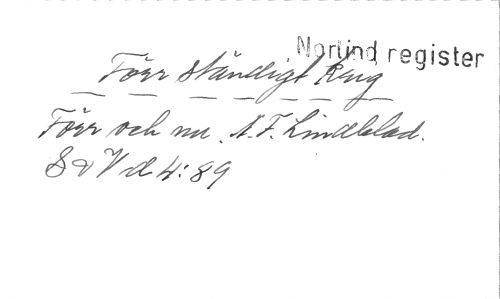 Norlind register
Förr ständigt krig
Förr och nu. A.F. Lindblad.
S d V d 4:89